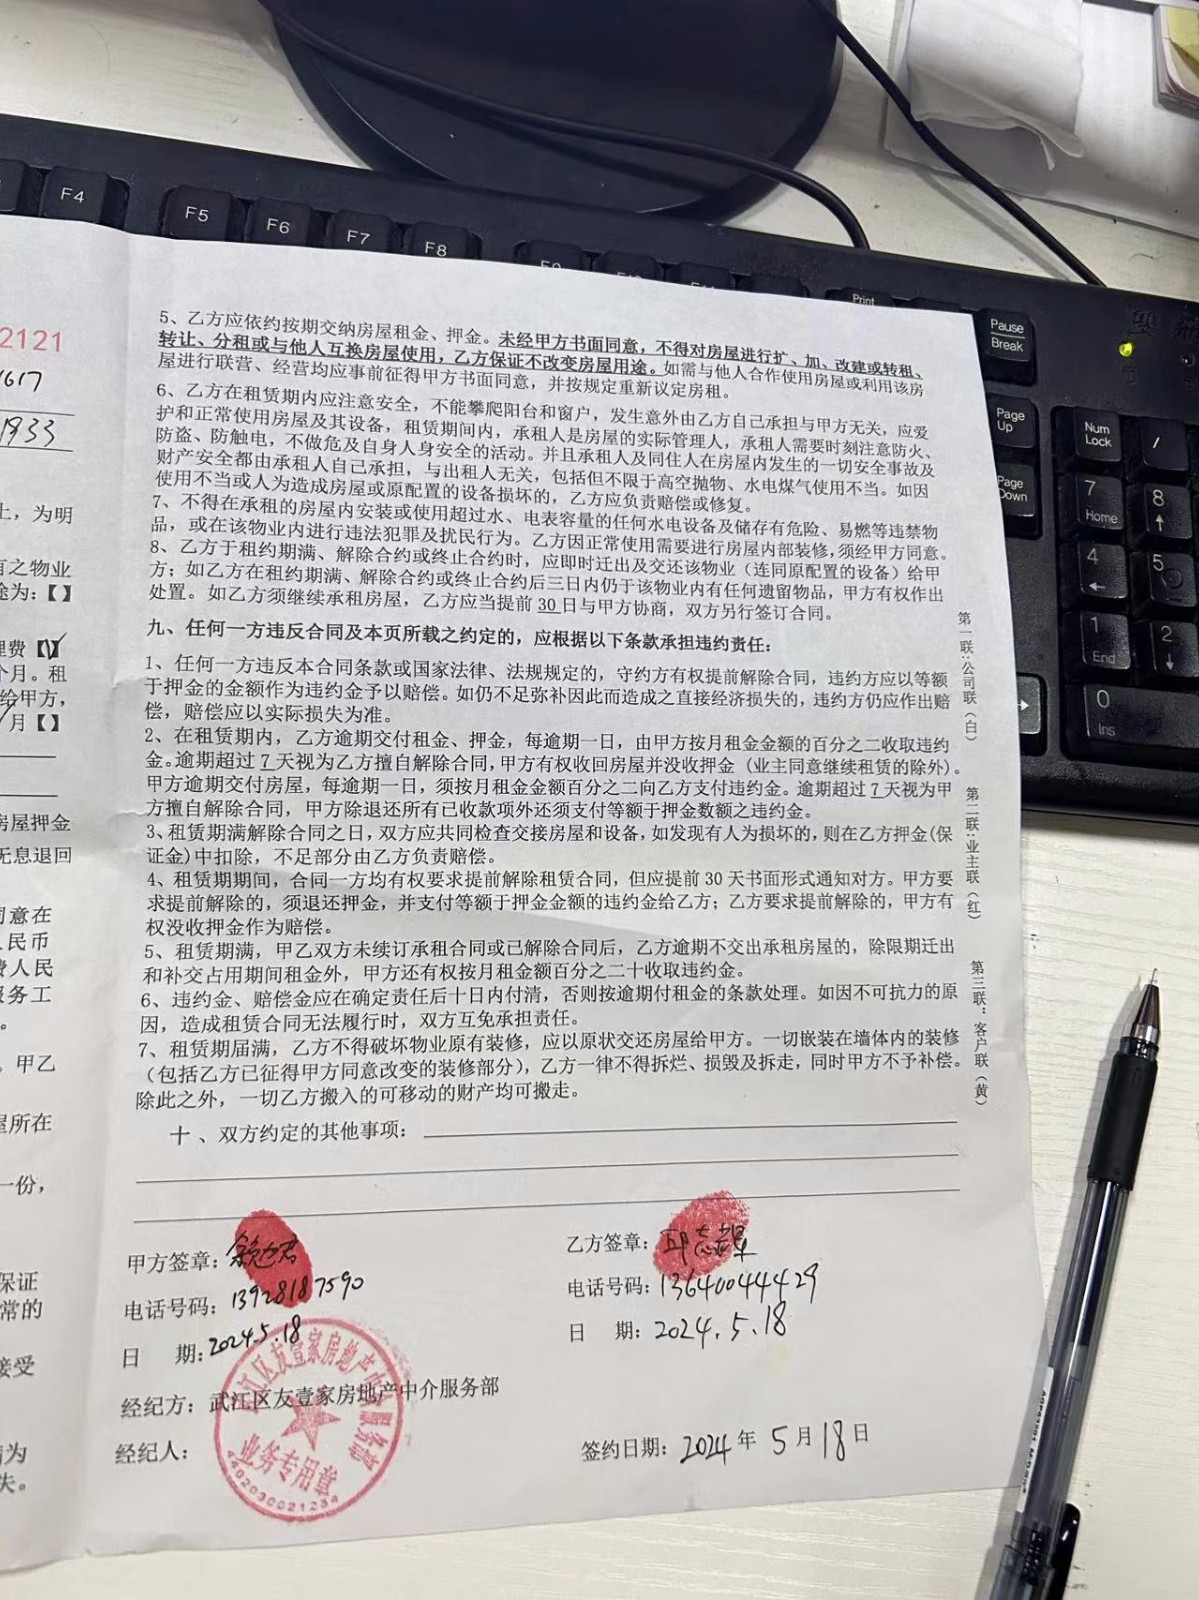 F4
F5
F6
F7
F8
Print
Pause
Break
Page
Up
Page
Down
Num
Lock
/
7
Home
8
4
5
1
End
2
0
Ins
2121
1617
1933
上，为明
有之物业
途为：【】
理费【√】
个月。租
给甲方，
月【】
房屋押金
无息退回
同意在
人民币
费人民
服务工
。甲乙
屋所在
一份，
保证
常的
接受
为
失。
5、乙方应依约按期交纳房屋租金、押金。未经甲方书面同意，不得对房屋进行扩、加、改建或转租、
转让、分租或与他人互换房屋使用，乙方保证不改变房屋用途。如需与他人合作使用房屋或利用该房
屋进行联营、经营均应事前征得甲方书面同意，并按规定重新议定房租。
6、乙方在租赁期内应注意安全，不能攀爬阳台和窗户，发生意外由乙方自己承担与甲方无关，应爱
护和正常使用房屋及其设备，租赁期间内，承租人是房屋的实际管理人，承租人需要时刻注意防火、
防盗、防触电，不做危及自身人身安全的活动。并且承租人及同住人在房屋内发生的一切安全事故及
财产安全都由承租人自己承担，与出租人无关，包括但不限于高空抛物、水电煤气使用不当。如因
使用不当或人为造成房屋或原配置的设备损坏的，乙方应负责赔偿或修复。
7、不得在承租的房屋内安装或使用超过水、电表容量的任何水电设备及储存有危险、易燃等违禁物
品，或在该物业内进行违法犯罪及扰民行为。乙方因正常使用需要进行房屋内部装修，须经甲方同意。
8、乙方于租约期满、解除合约或终止合约时，应即时迁出及交还该物业（连同原配置的设备）给甲
方；如乙方在租约期满、解除合约或终止合约后三日内仍于该物业内有任何遗留物品，甲方有权作出
处置。如乙方须继续承租房屋，乙方应当提前 30 日与甲方协商，双方另行签订合同。
九、任何一方违反合同及本页所载之约定的，应根据以下条款承担违约责任：
1、任何一方违反本合同条款或国家法律、法规规定的，守约方有权提前解除合同，违约方应以等额
于押金的金额作为违约金予以赔偿。如仍不足弥补因此而造成之直接经济损失的，违约方仍应作出赔
偿，赔偿应以实际损失为准。
2、在租赁期内，乙方逾期交付租金、押金，每逾期一日，由甲方按月租金金额的百分之二收取违约
金。逾期超过 7 天视为乙方擅自解除合同，甲方有权收回房屋并没收押金（业主同意继续租赁的除外）。
甲方逾期交付房屋，每逾期一日，须按月租金金额百分之二向乙方支付违约金。逾期超过 7 天视为甲
方擅自解除合同，甲方除退还所有已收款项外还须支付等额于押金数额之违约金。
3、租赁期满解除合同之日，双方应共同检查交接房屋和设备，如发现有人为损坏的，则在乙方押金（保
证金）中扣除，不足部分由乙方负责赔偿。
4、租赁期期间，合同一方均有权要求提前解除租赁合同，但应提前 30 天书面形式通知对方。甲方要
求提前解除的，须退还押金，并支付等额于押金金额的违约金给乙方；乙方要求提前解除的，甲方有
权没收押金作为赔偿。
5、租赁期满，甲乙双方未续订承租合同或已解除合同后，乙方逾期不交出承租房屋的，除限期迁出
和补交占用期间租金外，甲方还有权按月租金额百分之二十收取违约金。
6、违约金、赔偿金应在确定责任后十日内付清，否则按逾期付租金的条款处理。如因不可抗力的原
因，造成租赁合同无法履行时，双方互免承担责任。
7、租赁期届满，乙方不得破坏物业原有装修，应以原状交还房屋给甲方。一切嵌装在墙体内的装修
（包括乙方已征得甲方同意改变的装修部分），乙方一律不得拆烂、损毁及拆走，同时甲方不予补偿。
除此之外，一切乙方搬入的可移动的财产均可搬走。
十、双方约定的其他事项：
第一联：公司联（白）
第二联：业主联（红）
第三联：客户联（黄）
甲方签章：
电话号码：13928187590
日 期：2024.5.18
经纪方：武江区友壹家房地产中介服务部
经纪人：
乙方签章：邱志
电话号码：13640044429
日 期：2024.5.18
签约日期：2024年5月18日
武江区友壹家房地产中介服务部
业务专用章
4402030021234